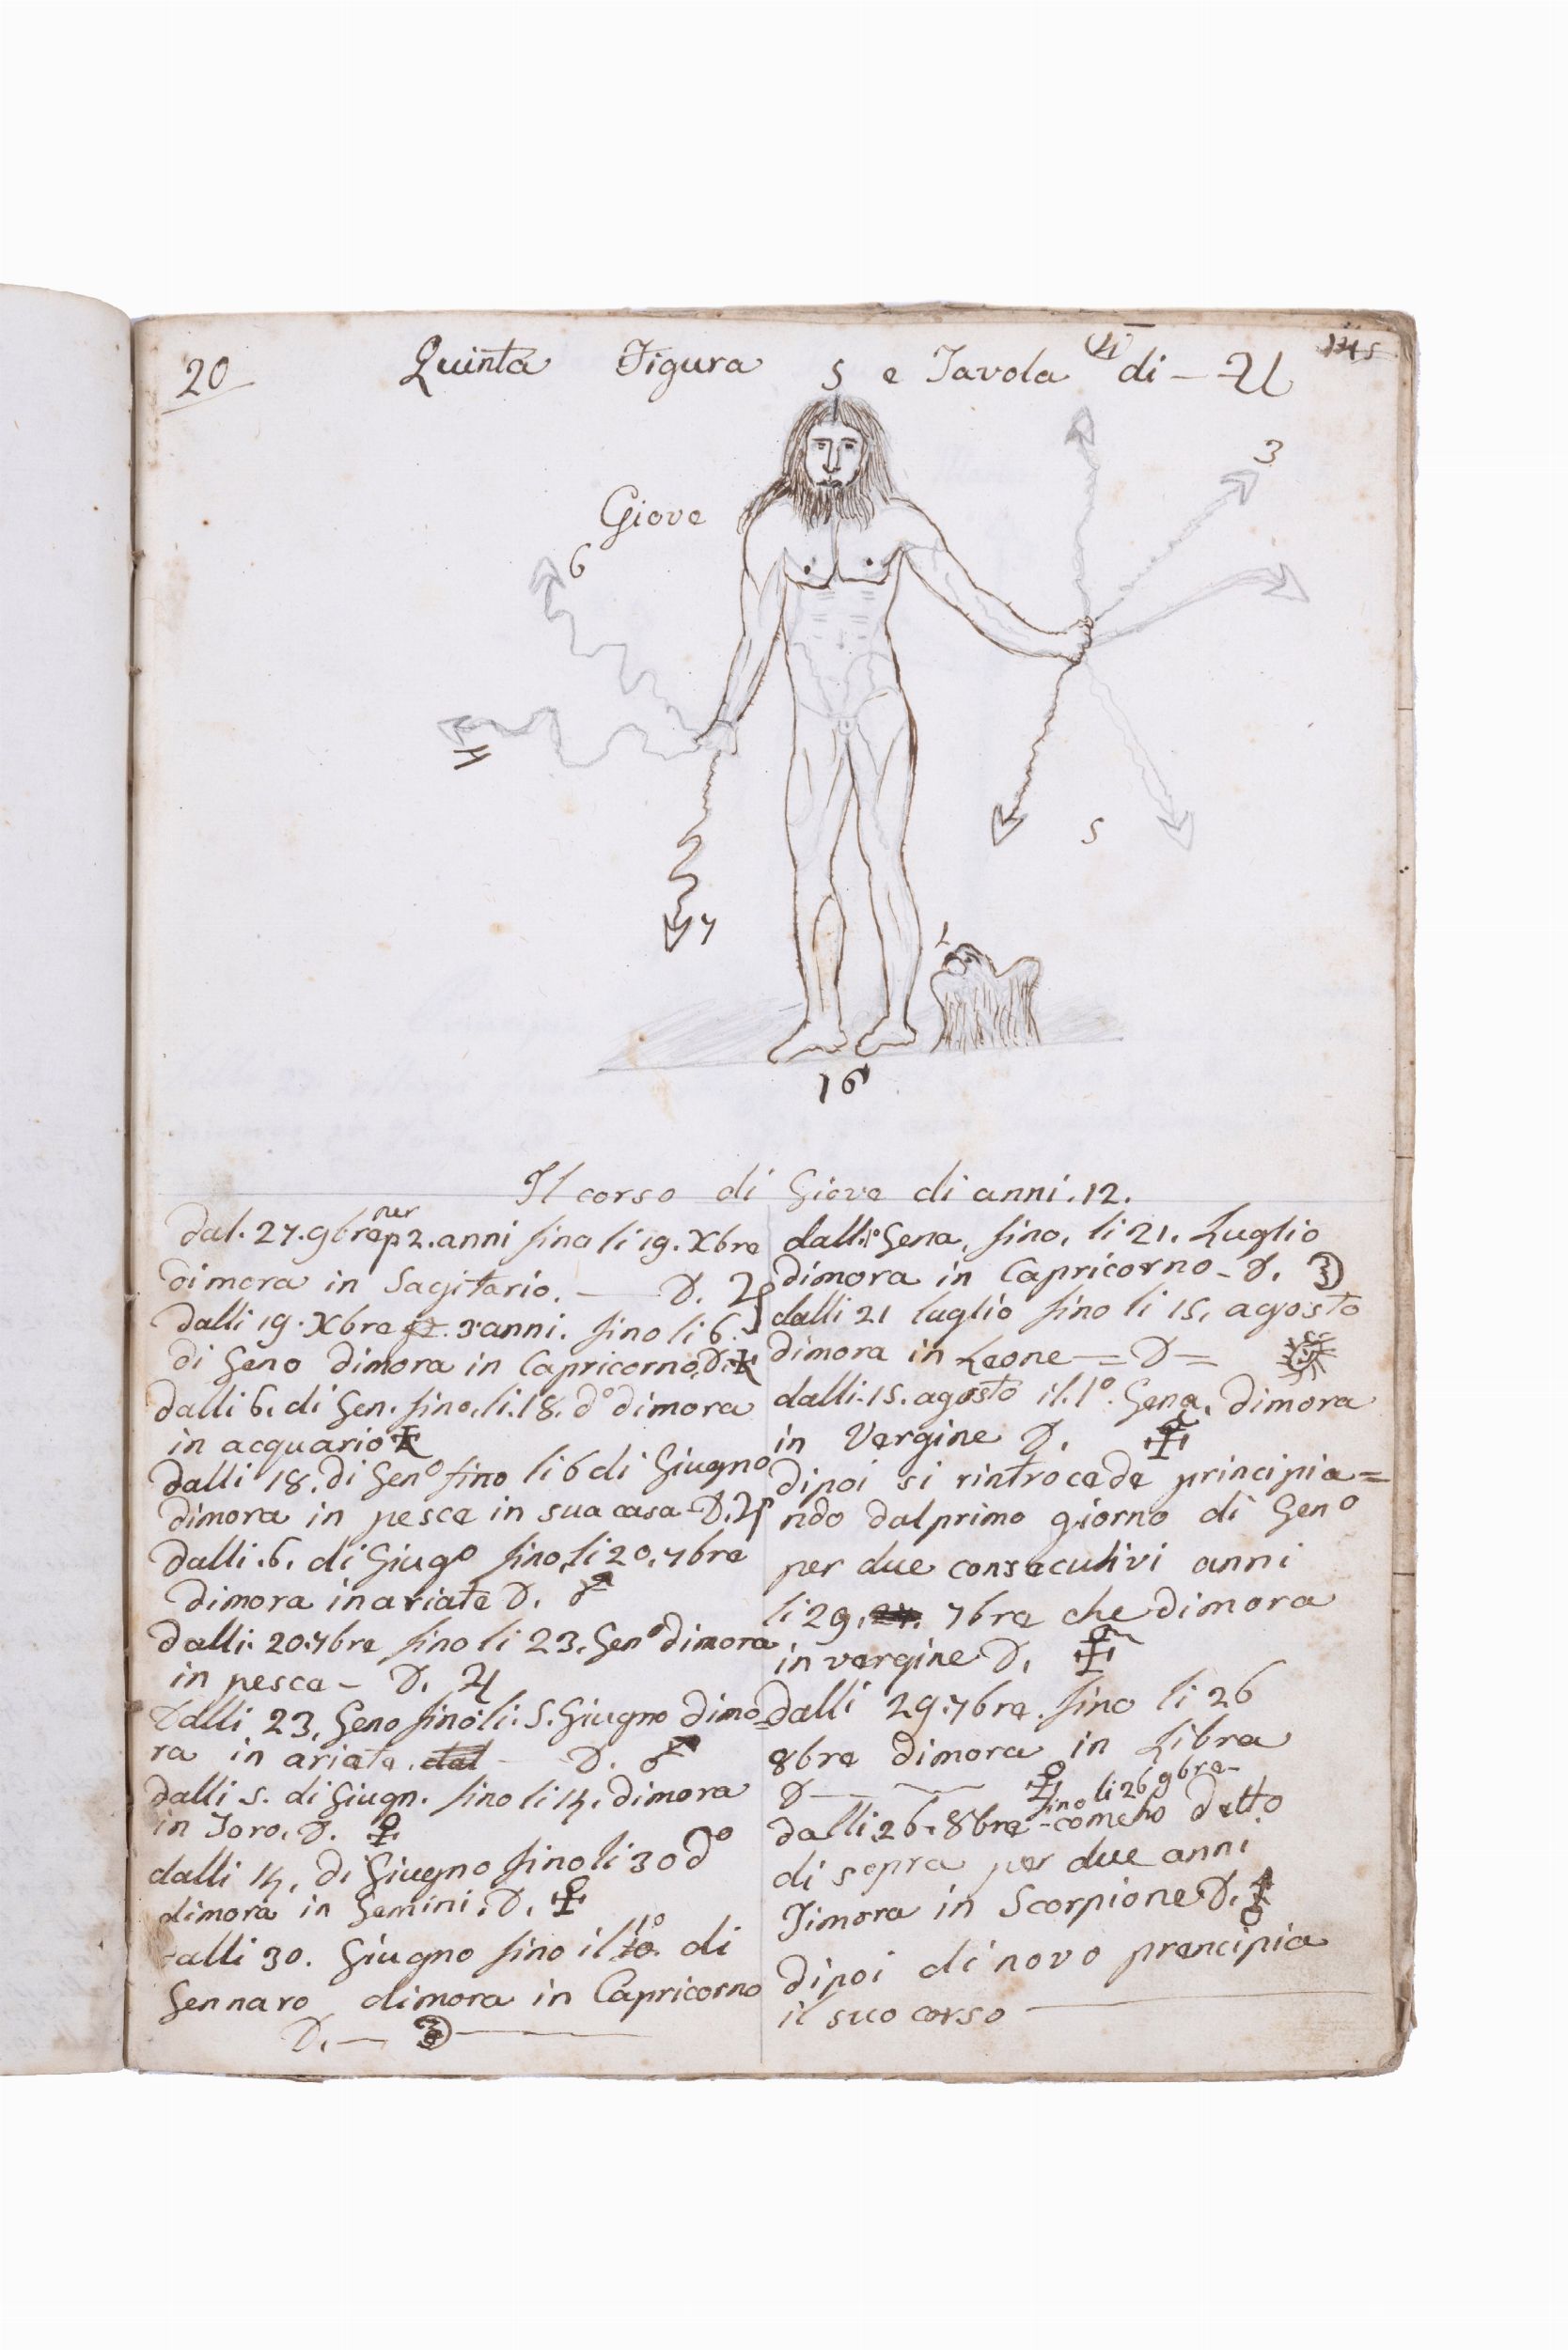 20
Quinta Figura 5 e Tavola di — ♃
Giove
3
6
4
5
7
16
Il corso di Giove di anni. 12.
dal. 27. 9bre per 2. anni fino li 19. Xbre
dimora in Sagitario. — D. ♃
dalli 19. Xbre 3 anni. fino li 6.
di Geno dimora in Capricorno, D.
dalli 6. di Gen. fino. li. 18. do dimora
in acquario
dalli 18. di Geno fino li 6 di Giugno
dimora in pesce in sua casa D. ♃
dalli. 6. di Giugo fino, li 20. 7bre
dimora in ariate D. ♂
dalli. 20. 7bre fino li 23. Geno dimora
in pesce — D. ♃
Dalli 23. Geno fino li. 5. Giugno dimo=
ra in ariete. dal — D. ♂
dalli 5. di Giugn. fino li 14. dimora
in Toro. D. ♀
dalli 14. di Giugno fino li 30 do
dimora in Gemini. D.
dalli 30. Giugno fino il 1o di
Gennaro dimora in Capricorno
D. —
dalli 1o Gena, fino, li 21. Luglio
dimora in Capricorno — D.
dalli 21 luglio fino li 15. agosto
dimora in Leone = D =
dalli. 15. agosto il. 1o. Gena. dimora
in Vergine D.
dipoi si rintrocede principia=
ndo dal primo giorno di Geno
per due consecutivi anni
li 29. 7bre che dimora
in vergine D.
dalli 29. 7bre. fino li 26
8bre dimora in Libra
D —
fino li 26 9bre —
dalli 26. 8bre — come ho detto
di sopra per due anni
Dimora in Scorpione D. ♂
dipoi di novo prencipia
il suo corso —